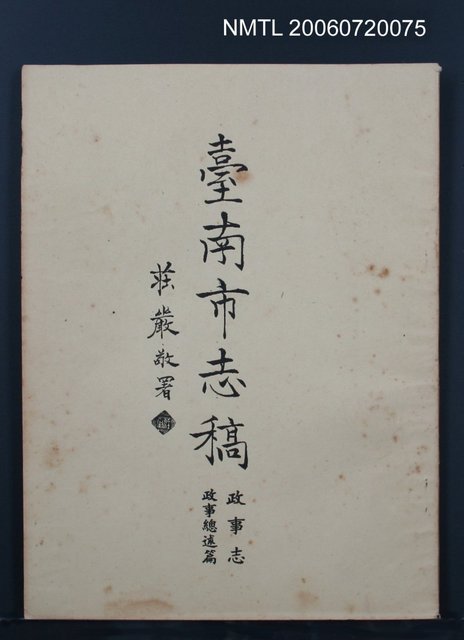 NMTL 20060720075
臺南市志稿
政事志
政事總述篇
莊嚴敬署